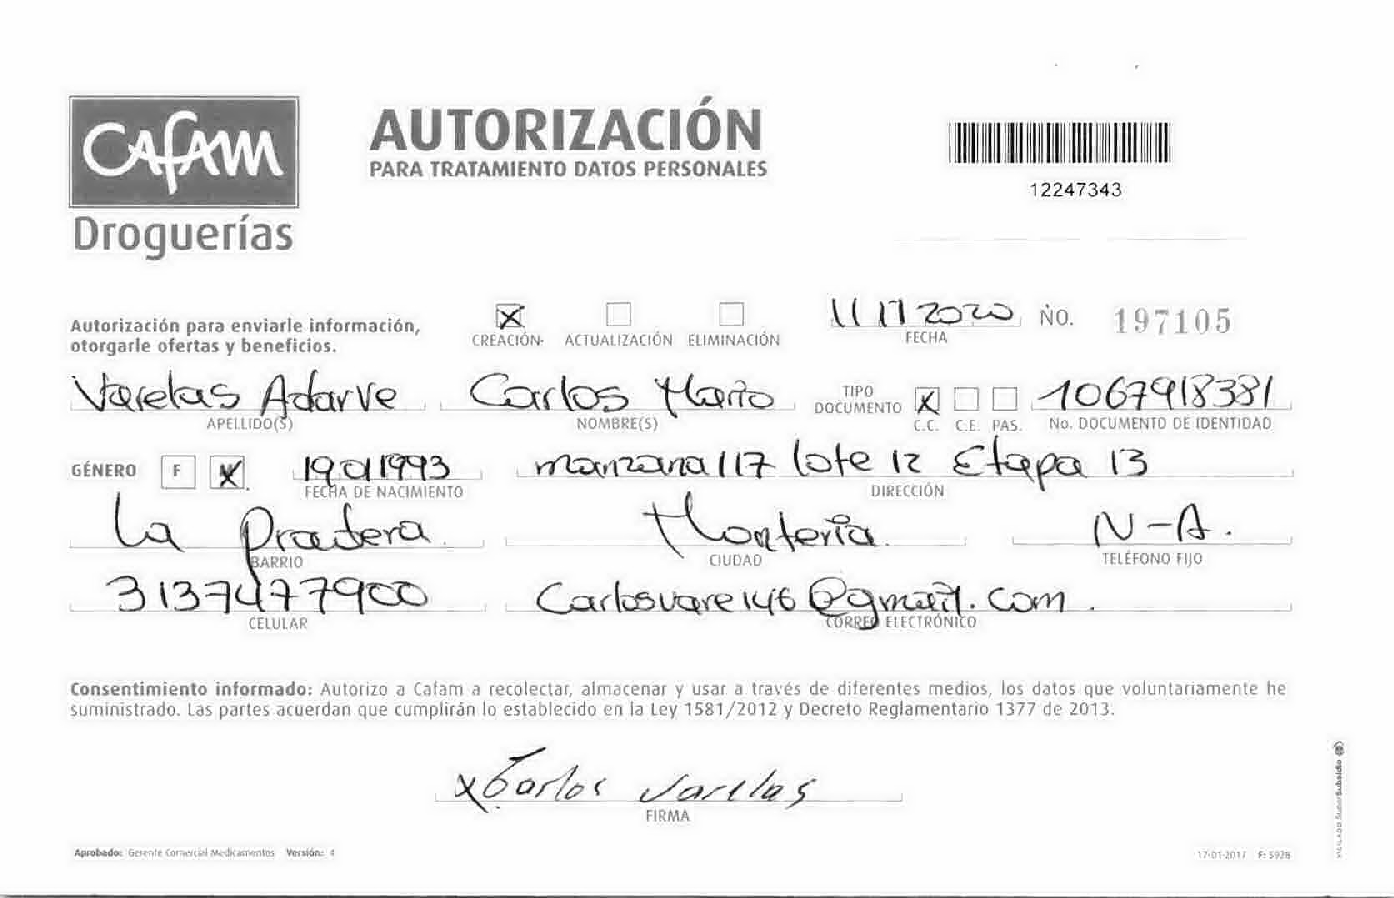 CAFAM
Droguerías
AUTORIZACIÓN
PARA TRATAMIENTO DATOS PERSONALES
12247343
Autorización para enviarle información,
otorgarle ofertas y beneficios.
X CREACIÓN ACTUALIZACIÓN ELIMINACIÓN
11 11 2020
FECHA
NO. 197105
Varelas Adarve
APELLIDO(S)
Carlos Mario
NOMBRE(S)
TIPO
DOCUMENTO
X
C.C. C.E. PAS.
1067918381
No. DOCUMENTO DE IDENTIDAD
GÉNERO F X
19011993
FECHA DE NACIMIENTO
manzana 117 lote 12 Etapa 13
DIRECCIÓN
La Pradera
BARRIO
Monteria
CIUDAD
N-A.
TELÉFONO FIJO
3137477900
CELULAR
Carlosvare146@gmail.com.
CORREO ELECTRÓNICO
Consentimiento informado: Autorizo a Cafam a recolectar, almacenar y usar a través de diferentes medios, los datos que voluntariamente he
suministrado. Las partes acuerdan que cumplirán lo establecido en la Ley 1581/2012 y Decreto Reglamentario 1377 de 2013.
x Carlos Varelas
FIRMA
Aprobado: Gerente Comercial Medicamentos Versión: 4
17-01-2017 F: 5928
VIGILADO SuperSubsidio